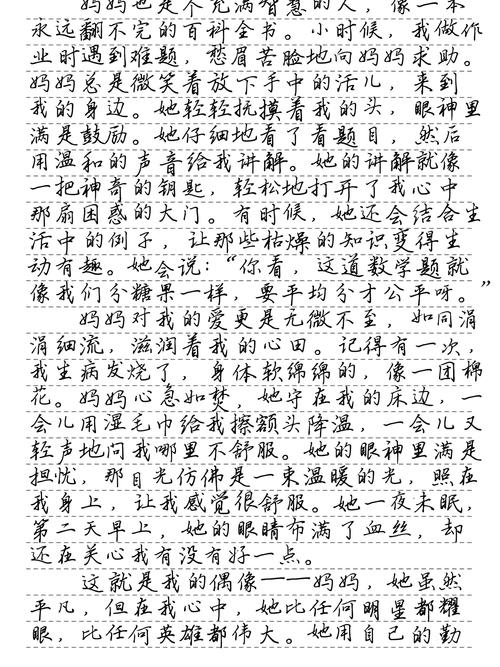 妈妈也是个充满智慧的人，像一本
永远翻不完的百科全书。小时候，我做作
业时遇到难题，愁眉苦脸地向妈妈求助。
妈妈总是微笑着放下手中的活儿，来到
我的身边。她轻轻抚摸着我的头，眼神里
满是鼓励。她仔细地看了看题目，然后
用温和的声音给我讲解。她的讲解就像
一把神奇的钥匙，轻松地打开了我心中
那扇困惑的大门。有时候，她还会结合生
活中的例子，让那些枯燥的知识变得生
动有趣。她会说：“你看，这道数学题就
像我们分糖果一样，要平均分才公平呀。”
妈妈对我的爱更是无微不至，如同涓
涓细流，滋润着我的心田。记得有一次，
我生病发烧了，身体软绵绵的，像一团棉
花。妈妈心急如焚，她守在我的床边，一
会儿用湿毛巾给我擦额头降温，一会儿又
轻声地问我哪里不舒服。她的眼神里满是
担忧，那目光仿佛是一束温暖的光，照在
我身上，让我感觉很舒服。她一夜未眠，
第二天早上，她的眼睛布满了血丝，却
还在关心我有没有好一点。
这就是我的偶像——妈妈，她虽然
平凡，但在我心中，她比任何明星都耀
眼，比任何英雄都伟大。她用自己的勤